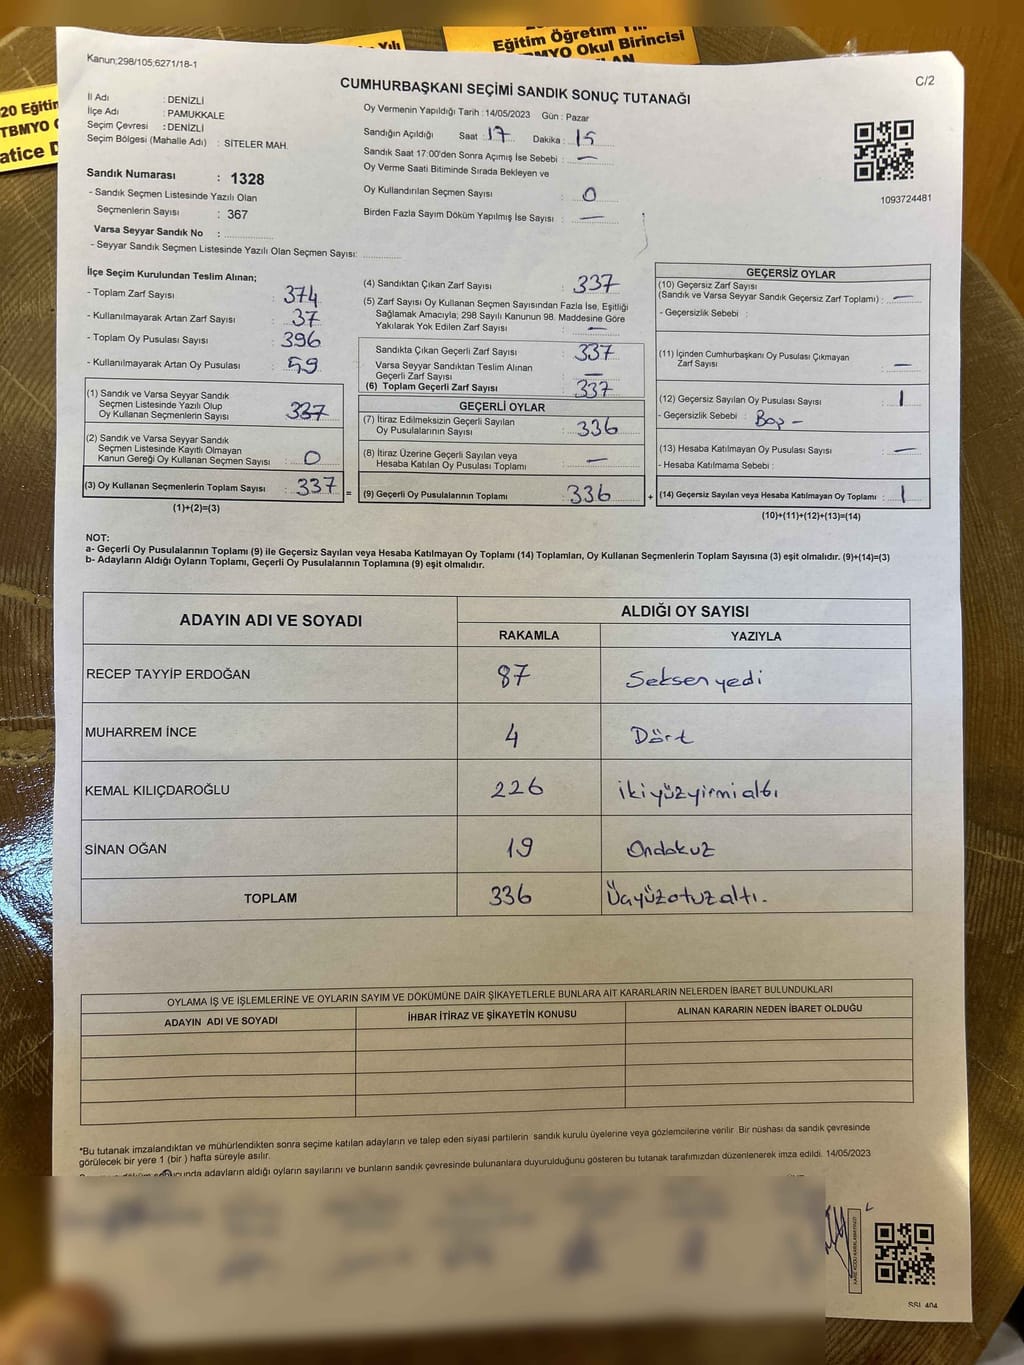 Eğitim Öğretim Yılı
TBMYO Okul Birincisi
Yılı
20 Eğitim
TBMYO
atice
Kanun;298/105;6271/18-1
C/2
CUMHURBAŞKANI SEÇİMİ SANDIK SONUÇ TUTANAĞI
İl Adı : DENİZLİ
İlçe Adı : PAMUKKALE
Seçim Çevresi : DENİZLİ
Seçim Bölgesi (Mahalle Adı) : SİTELER MAH.
Sandık Numarası : 1328
- Sandık Seçmen Listesinde Yazılı Olan
Seçmenlerin Sayısı : 367
Varsa Seyyar Sandık No :
- Seyyar Sandık Seçmen Listesinde Yazılı Olan Seçmen Sayısı:
Oy Vermenin Yapıldığı Tarih : 14/05/2023 Gün : Pazar
Sandığın Açıldığı Saat : 17 Dakika : 15
Sandık Saat 17:00'den Sonra Açımış İse Sebebi : —
Oy Verme Saati Bitiminde Sırada Bekleyen ve
Oy Kullandırılan Seçmen Sayısı : 0
Birden Fazla Sayım Döküm Yapılmış İse Sayısı : —
1093724481
İlçe Seçim Kurulundan Teslim Alınan;
- Toplam Zarf Sayısı : 374
- Kullanılmayarak Artan Zarf Sayısı : 37
- Toplam Oy Pusulası Sayısı : 396
- Kullanılmayarak Artan Oy Pusulası : 59
(1) Sandık ve Varsa Seyyar Sandık
Seçmen Listesinde Yazılı Olup
Oy Kullanan Seçmenlerin Sayısı : 337
(2) Sandık ve Varsa Seyyar Sandık
Seçmen Listesinde Kayıtlı Olmayan
Kanun Gereği Oy Kullanan Seçmen Sayısı : 0
(3) Oy Kullanan Seçmenlerin Toplam Sayısı : 337
(1)+(2)=(3)
(4) Sandıktan Çıkan Zarf Sayısı : 337
(5) Zarf Sayısı Oy Kullanan Seçmen Sayısından Fazla İse, Eşitliği
Sağlamak Amacıyla; 298 Sayılı Kanunun 98. Maddesine Göre
Yakılarak Yok Edilen Zarf Sayısı : —
Sandıkta Çıkan Geçerli Zarf Sayısı : 337
Varsa Seyyar Sandıktan Teslim Alınan
Geçerli Zarf Sayısı : —
(6) Toplam Geçerli Zarf Sayısı : 337
GEÇERLİ OYLAR
(7) İtiraz Edilmeksizin Geçerli Sayılan
Oy Pusulalarının Sayısı : 336
(8) İtiraz Üzerine Geçerli Sayılan veya
Hesaba Katılan Oy Pusulası Toplamı : —
= (9) Geçerli Oy Pusulalarının Toplamı : 336
GEÇERSİZ OYLAR
(10) Geçersiz Zarf Sayısı
(Sandık ve Varsa Seyyar Sandık Geçersiz Zarf Toplamı) : —
- Geçersizlik Sebebi :
(11) İçinden Cumhurbaşkanı Oy Pusulası Çıkmayan
Zarf Sayısı : —
(12) Geçersiz Sayılan Oy Pusulası Sayısı : 1
- Geçersizlik Sebebi : Boş -
(13) Hesaba Katılmayan Oy Pusulası Sayısı : —
- Hesaba Katılmama Sebebi :
+ (14) Geçersiz Sayılan veya Hesaba Katılmayan Oy Toplamı : 1
(10)+(11)+(12)+(13)=(14)
NOT:
a- Geçerli Oy Pusulalarının Toplamı (9) ile Geçersiz Sayılan veya Hesaba Katılmayan Oy Toplamı (14) Toplamları, Oy Kullanan Seçmenlerin Toplam Sayısına (3) eşit olmalıdır. (9)+(14)=(3)
b- Adayların Aldığı Oyların Toplamı, Geçerli Oy Pusulalarının Toplamına (9) eşit olmalıdır.
ADAYIN ADI VE SOYADI
ALDIĞI OY SAYISI
RAKAMLA YAZIYLA
RECEP TAYYİP ERDOĞAN 87 Seksenyedi
MUHARREM İNCE 4 Dört
KEMAL KILIÇDAROĞLU 226 ikiyüzyirmialtı
SİNAN OĞAN 19 Ondokuz
TOPLAM 336 Üçyüzotuzaltı.
OYLAMA İŞ VE İŞLEMLERİNE VE OYLARIN SAYIM VE DÖKÜMÜNE DAİR ŞİKAYETLERLE BUNLARA AİT KARARLARIN NELERDEN İBARET BULUNDUKLARI
ADAYIN ADI VE SOYADI İHBAR İTİRAZ VE ŞİKAYETİN KONUSU ALINAN KARARIN NEDEN İBARET OLDUĞU
*Bu tutanak imzalandıktan ve mühürlendikten sonra seçime katılan adayların ve talep eden siyasi partilerin sandık kurulu üyelerine veya gözlemcilerine verilir .Bir nüshası da sandık çevresinde
görülecek bir yere 1 (bir ) hafta süreyle asılır.
adayların aldığı oyların sayılarını ve bunların sandık çevresinde bulunanlara duyurulduğunu gösteren bu tutanak tarafımızdan düzenlenerek imza edildi. 14/05/2023